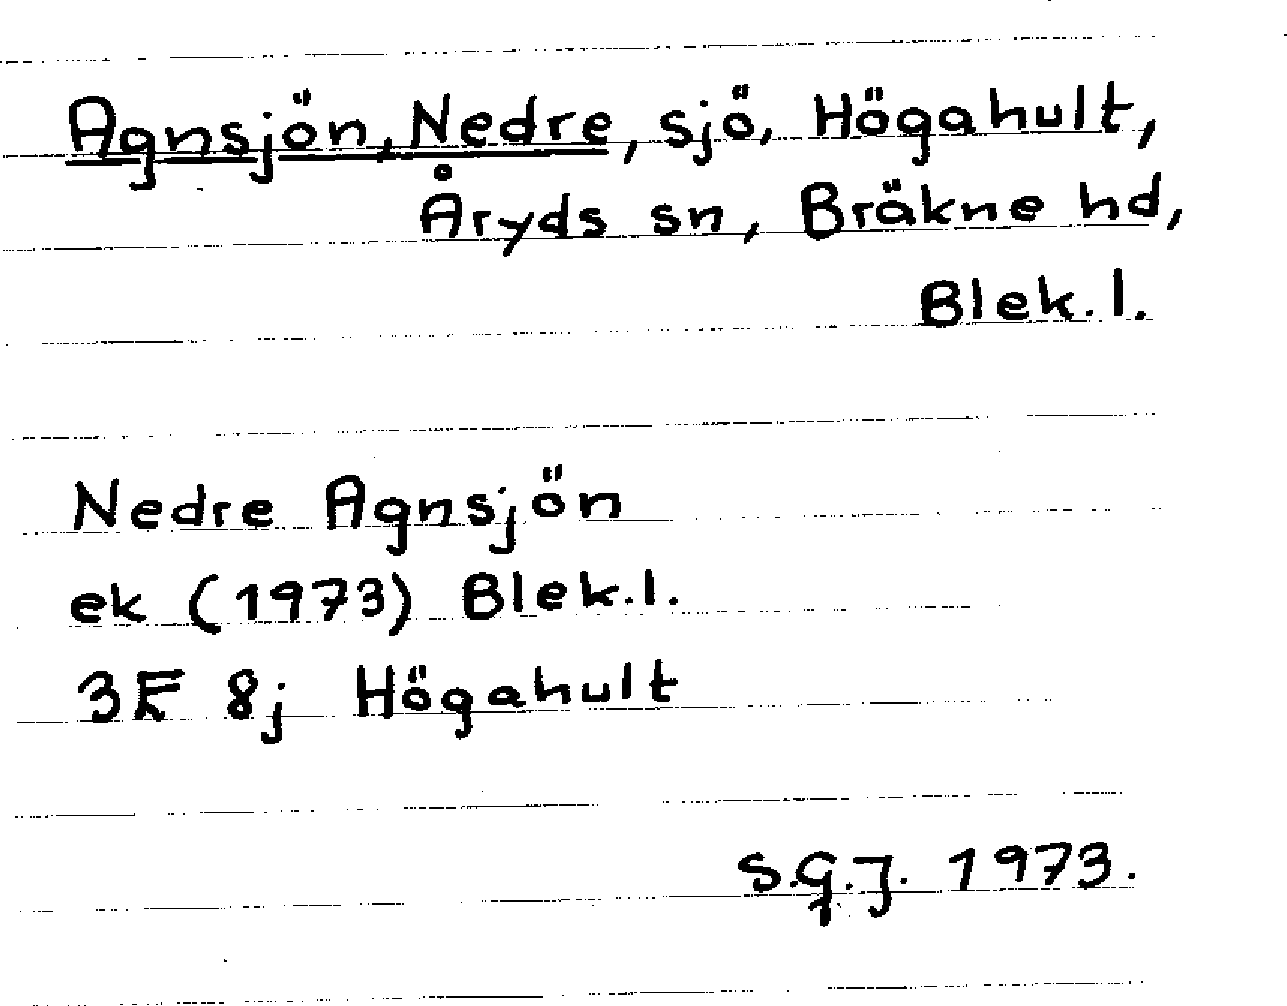 Agnsjön, Nedre, sjö, Högahult,
Åryds sn, Bräkne hd,
Blek. l.
Nedre Agnsjön
ek (1973) Blek. l.
3F 8j Högahult
S.G.J. 1973.